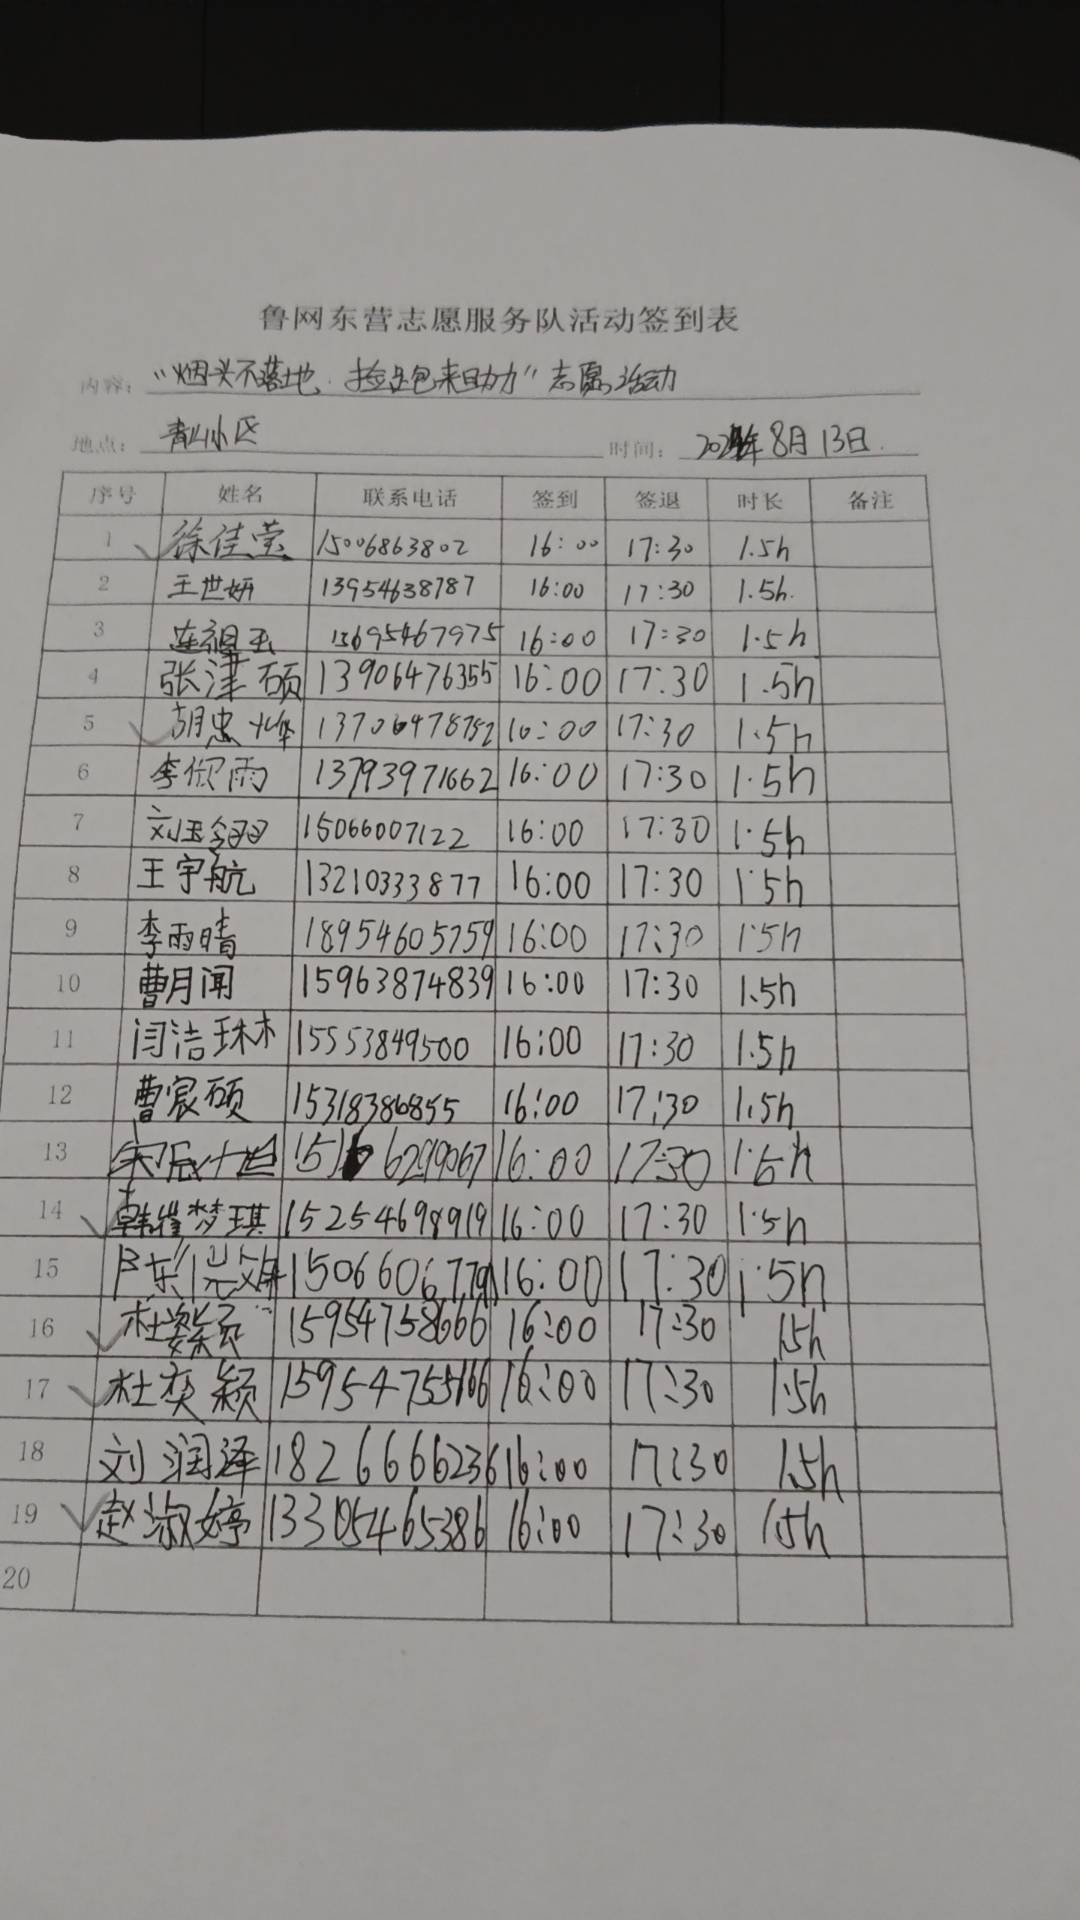 鲁网东营志愿服务队活动签到表
内容： “烟头不落地，捡足包来助力”志愿活动
地点： 青山小区 时间： 年8月13日.
序号 姓名 联系电话 签到 签退 时长 备注
1 徐佳莹 15006863802 16:00 17:30 1.5h
2 王世妍 13954638787 16:00 17:30 1.5h.
3 13695467975 16:00 17:30 1.5h
4 张津硕 13906476355 16:00 17:30 1.5h
5 胡忠烨 13706478752 16:00 17:30 1.5h
6 李俽雨 13793971662 16:00 17:30 1.5h
7 刘玉翎 15066007122 16:00 17:30 1.5h
8 王宇航 13210333877 16:00 17:30 1.5h
9 李雨晴 18954605759 16:00 17:30 1.5h
10 曹月闻 15963874839 16:00 17:30 1.5h
11 闫洁琳 15553849500 16:00 17:30 1.5h
12 曹宸硕 15318386855 16:00 17:30 1.5h
13 16:00 17:30 1.5h
14 韩崔梦琪 15254698919 16:00 17:30 1.5h
15 陈 16:00 17:30 1.5h
16 杜 15954758666 16:00 17:30 1.5h
17 杜奕颖 15954755166 16:00 17:30 1.5h
18 刘润泽 18266666236 16:00 17:30 1.5h
19 赵淑婷 13305465386 16:00 17:30 1.5h
20